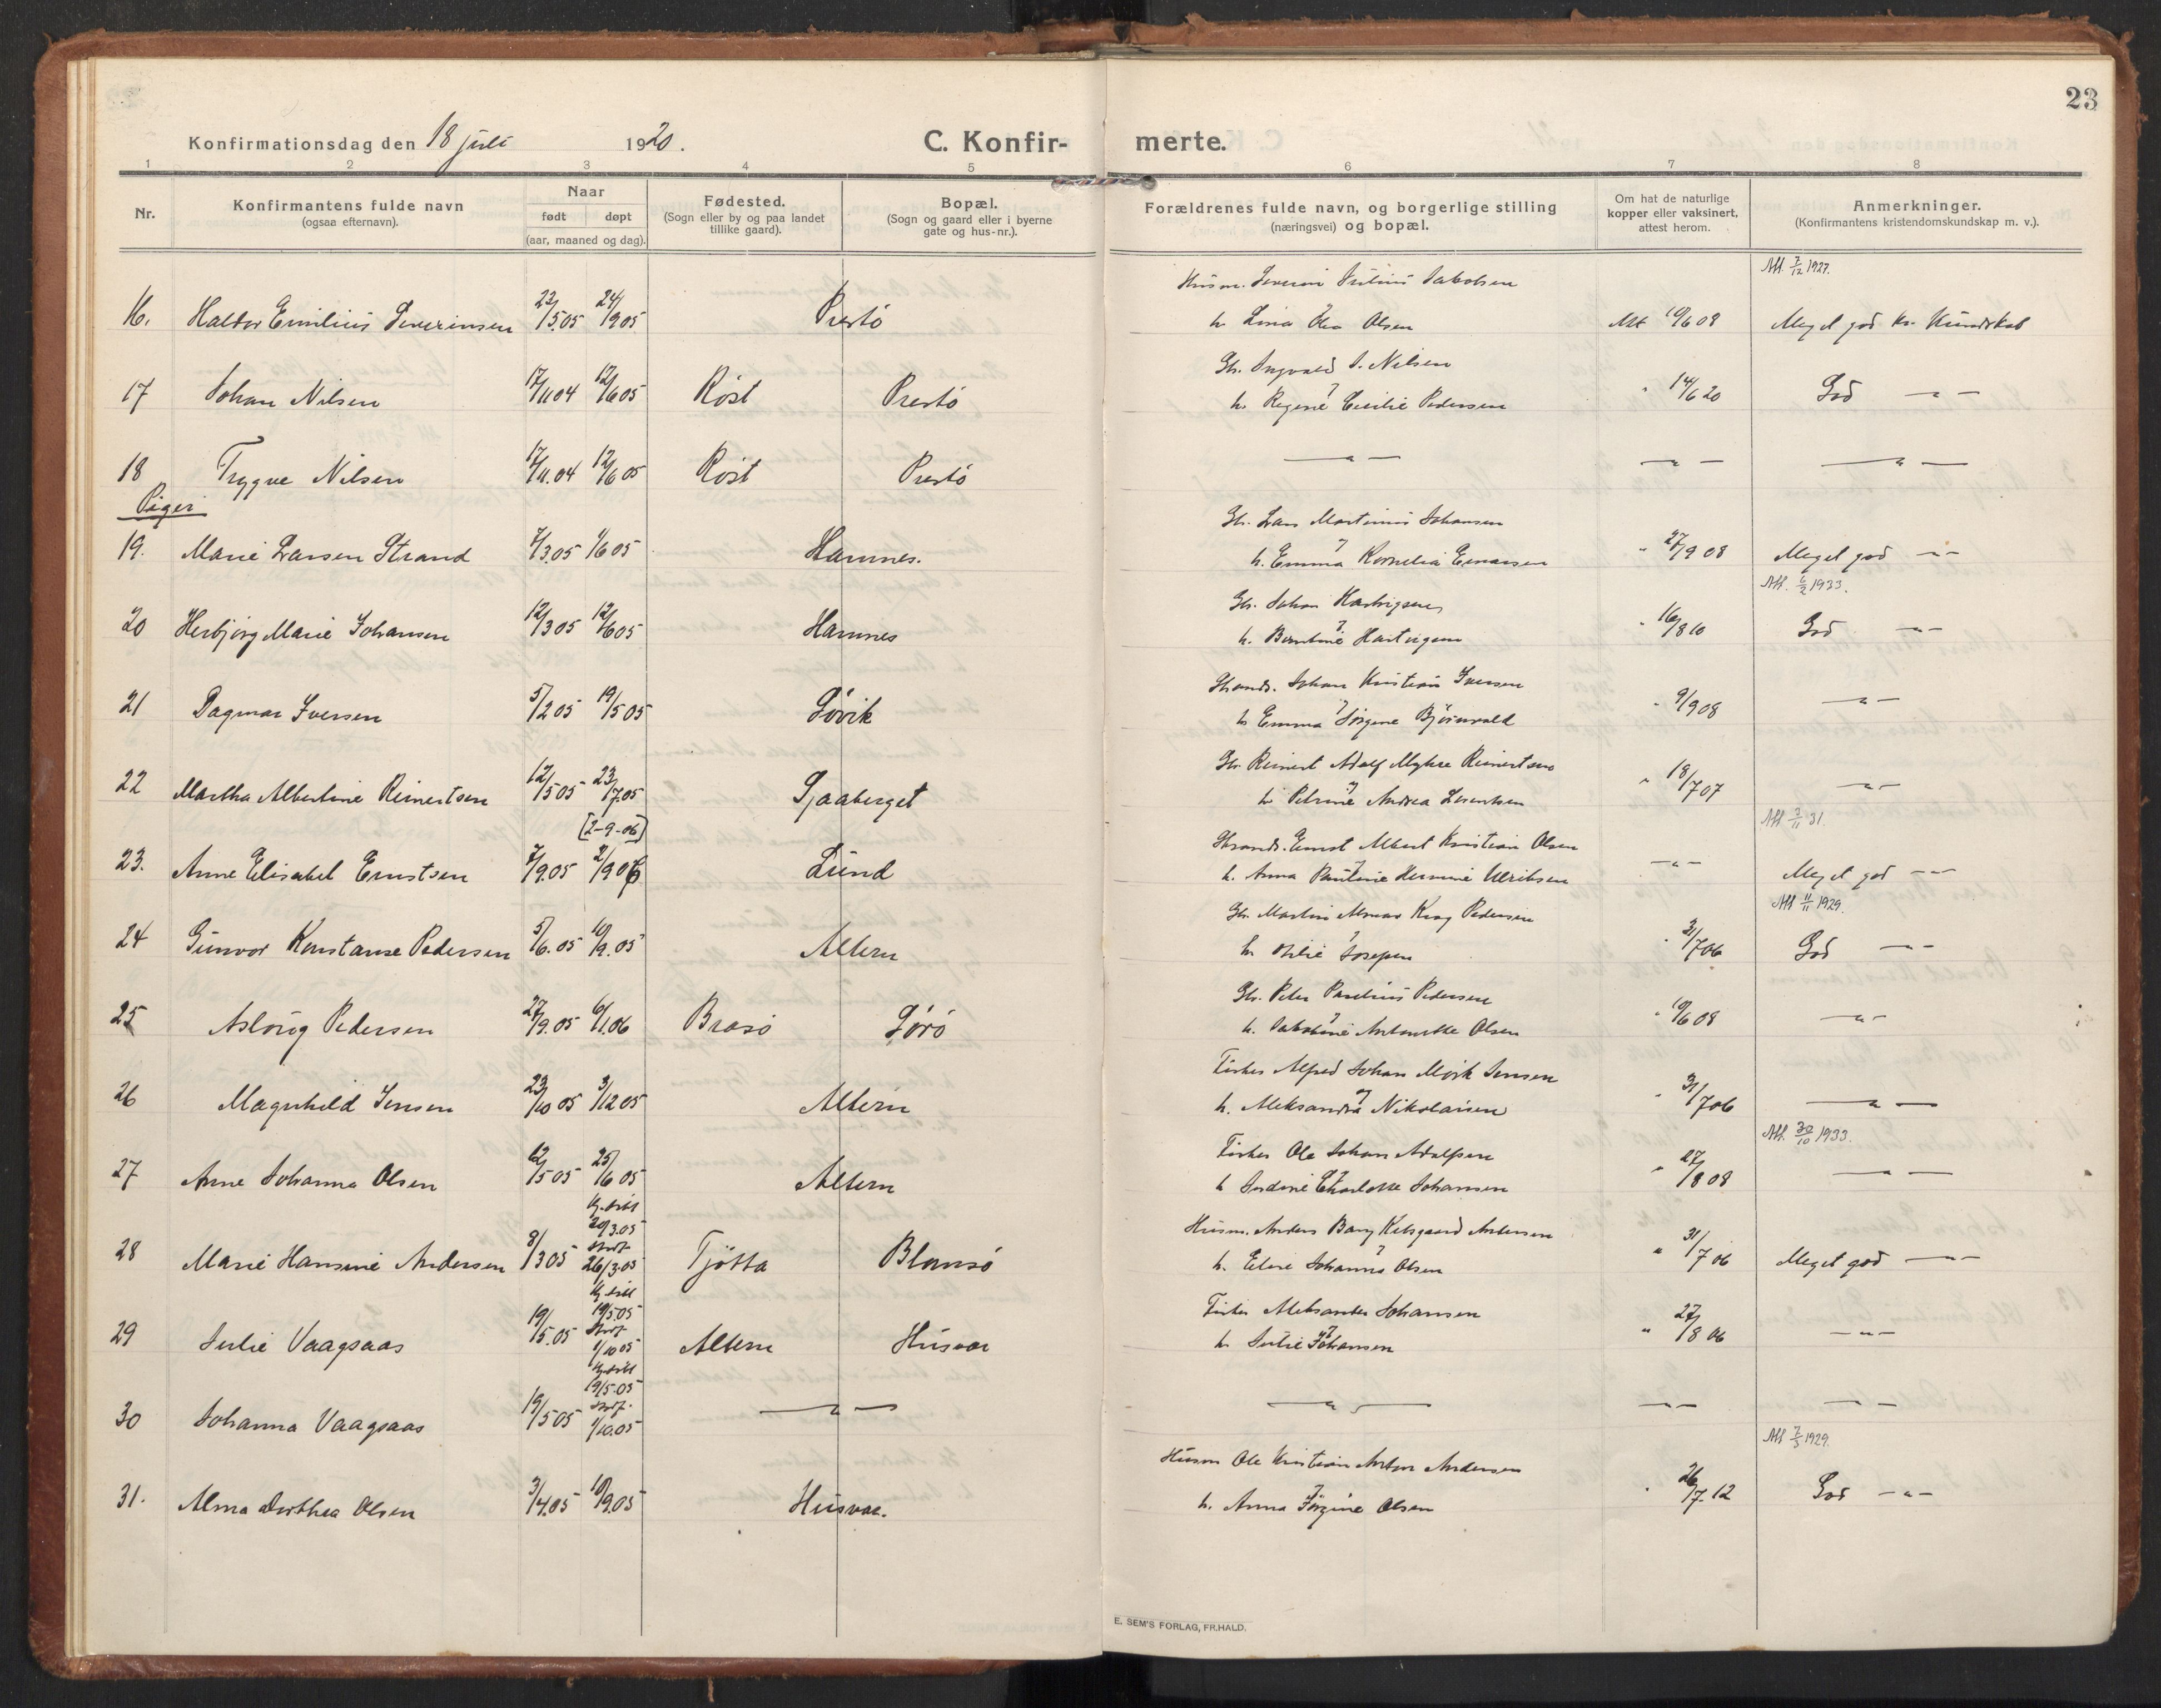 23
Konfirmationsdag den 18 juli 1920.
C. Konfir-
merte.
1 2 3 4 5 6 7 8
Nr.
Konfirmantens fulde navn
(ogsaa efternavn).
Naar
født døpt
(aar, maaned og dag).
Fødested.
(Sogn eller by og paa landet
tillike gaard).
Bopæl.
(Sogn og gaard eller i byerne
gate og hus-nr.).
Forældrenes fulde navn, og borgerlige stilling
(næringsvei) og bopæl.
Om hat de naturlige
kopper eller vaksinert,
attest herom.
Anmerkninger.
(Konfirmantens kristendomskundskap m. v.).
Att. 7/12 1927.
Husm. Severin Julius Jakobsen
16. Haldor Emilius Severinsen 23/5.05 24/9 05 Prestö h. Lina Olea Olsen Att 10/6 08 Meget god kr. Kundskab
Gbr. Ingvald J. Nilsen
17 Johan Nilsen 17/11 04 12/6 05 Röst Prestö h. Regine Cecilie Pedersen " 14/6 20 God — " —
18 Trygve Nilsen 17/11.04 12/6 05 Röst Prestö — " — — " — — " —
Piger
Gbr. Lars Martinus Johansen
19. Marie Larsen Strand 7/3.05 1/6 05 Hamnes. h. Emma Kornelia Einarsen " 27/9 08 Meget god — " —
Att. 6/2 1933.
Gbr. Johan Hartvigsen
20 Herbjørg Marie Johansen 12/3 05 12/6 05 Hamnes h. Berntine Hartvigsen " 16/8 10 God — " —
Strands. Johan Kristian Iversen
21 Dagmar Iversen 5/2 05 19/5 05 Sövik h. Emma Jörgine Björnvold " 9/9 08 — " —
Gbr. Reinert Adolf Myhre Reinertsen
22 Martha Albertine Reinertsen 12/5 05 23/7.05 Sjaaberget h. Petrine Andrea Lorentsen " 18/7 07 — " —
[2-9-06]
Att 3/11 31.
Strands. Ernst Albert Kristian Olsen
23. Anne Elisabet Ernstsen 7/9.05 2/9 06 Lund h. Anna Pauline Hermine Ulriksen — " — Meget god — " —
Att 11/11 1929.
Gbr. Martin Almar Krog Pedersen
24 Gunvor Konstanse Pedersen 5/6.05 10/9.05 Altern h. Otilie Josepsen " 31/7 06 God — " —
Gbr. Peter Paulinus Pedersen
25 Aslaug Pedersen 27/9.05 6/1.06 Brasö Sörö h. Jakobine Antonette Olsen " 10/6 08 — " —
Fisker Alfred Johan Mörk Jensen
26 Magnhild Jensen 23/10 05 3/12 05 Altern h. Aleksandra Nikolaisen " 31/7 06 — " —
Att. 30/10 1933.
Fisker Ole Johan Adolfsen
27 Anne Johanna Olsen 12/5 05 25/6 05 Altern h. Jordine Charlotte Johansen " 27/8 08 — " —
20/3.05
Husm. Anders Bang Kilsgaard Andersen
28 Marie Hansine Andersen 8/3 05 26/3.05 Tjötta Blomsö h. Eline Johanna Olsen " 31/7 06 Meget god — " —
19/5.05
Fisker Aleksander Johansen
29 Julie Vaagsaas 19/5.05 1/10 05 Altern Husvær h. Julie Johansen " 27/8 06 — " —
19/5.05
30 Johanna Vaagsaas 19/5 05 1/10.05 — " — — " — — " — — " —
Att 7/5 1929.
Husm Ole Kristian Anton Andersen
31. Alma Dorthea Olsen 3/4.05 10/9.05 Husvær. h. Anna Jörgine Olsen " 26/7.12 God — " —
E. SEM'S FORLAG, FR.HALD.